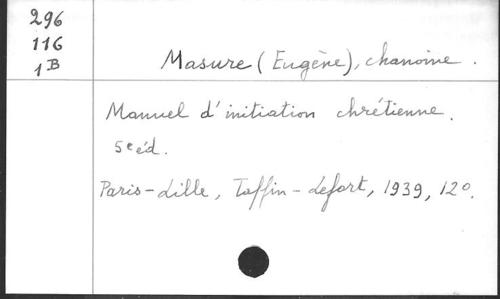 296
116
1B
Masure (Eugène), chanoine.
Manuel d'initiation chrétienne.
5e éd.
Paris-Lille, Taffin-Lefort, 1939, 12°.